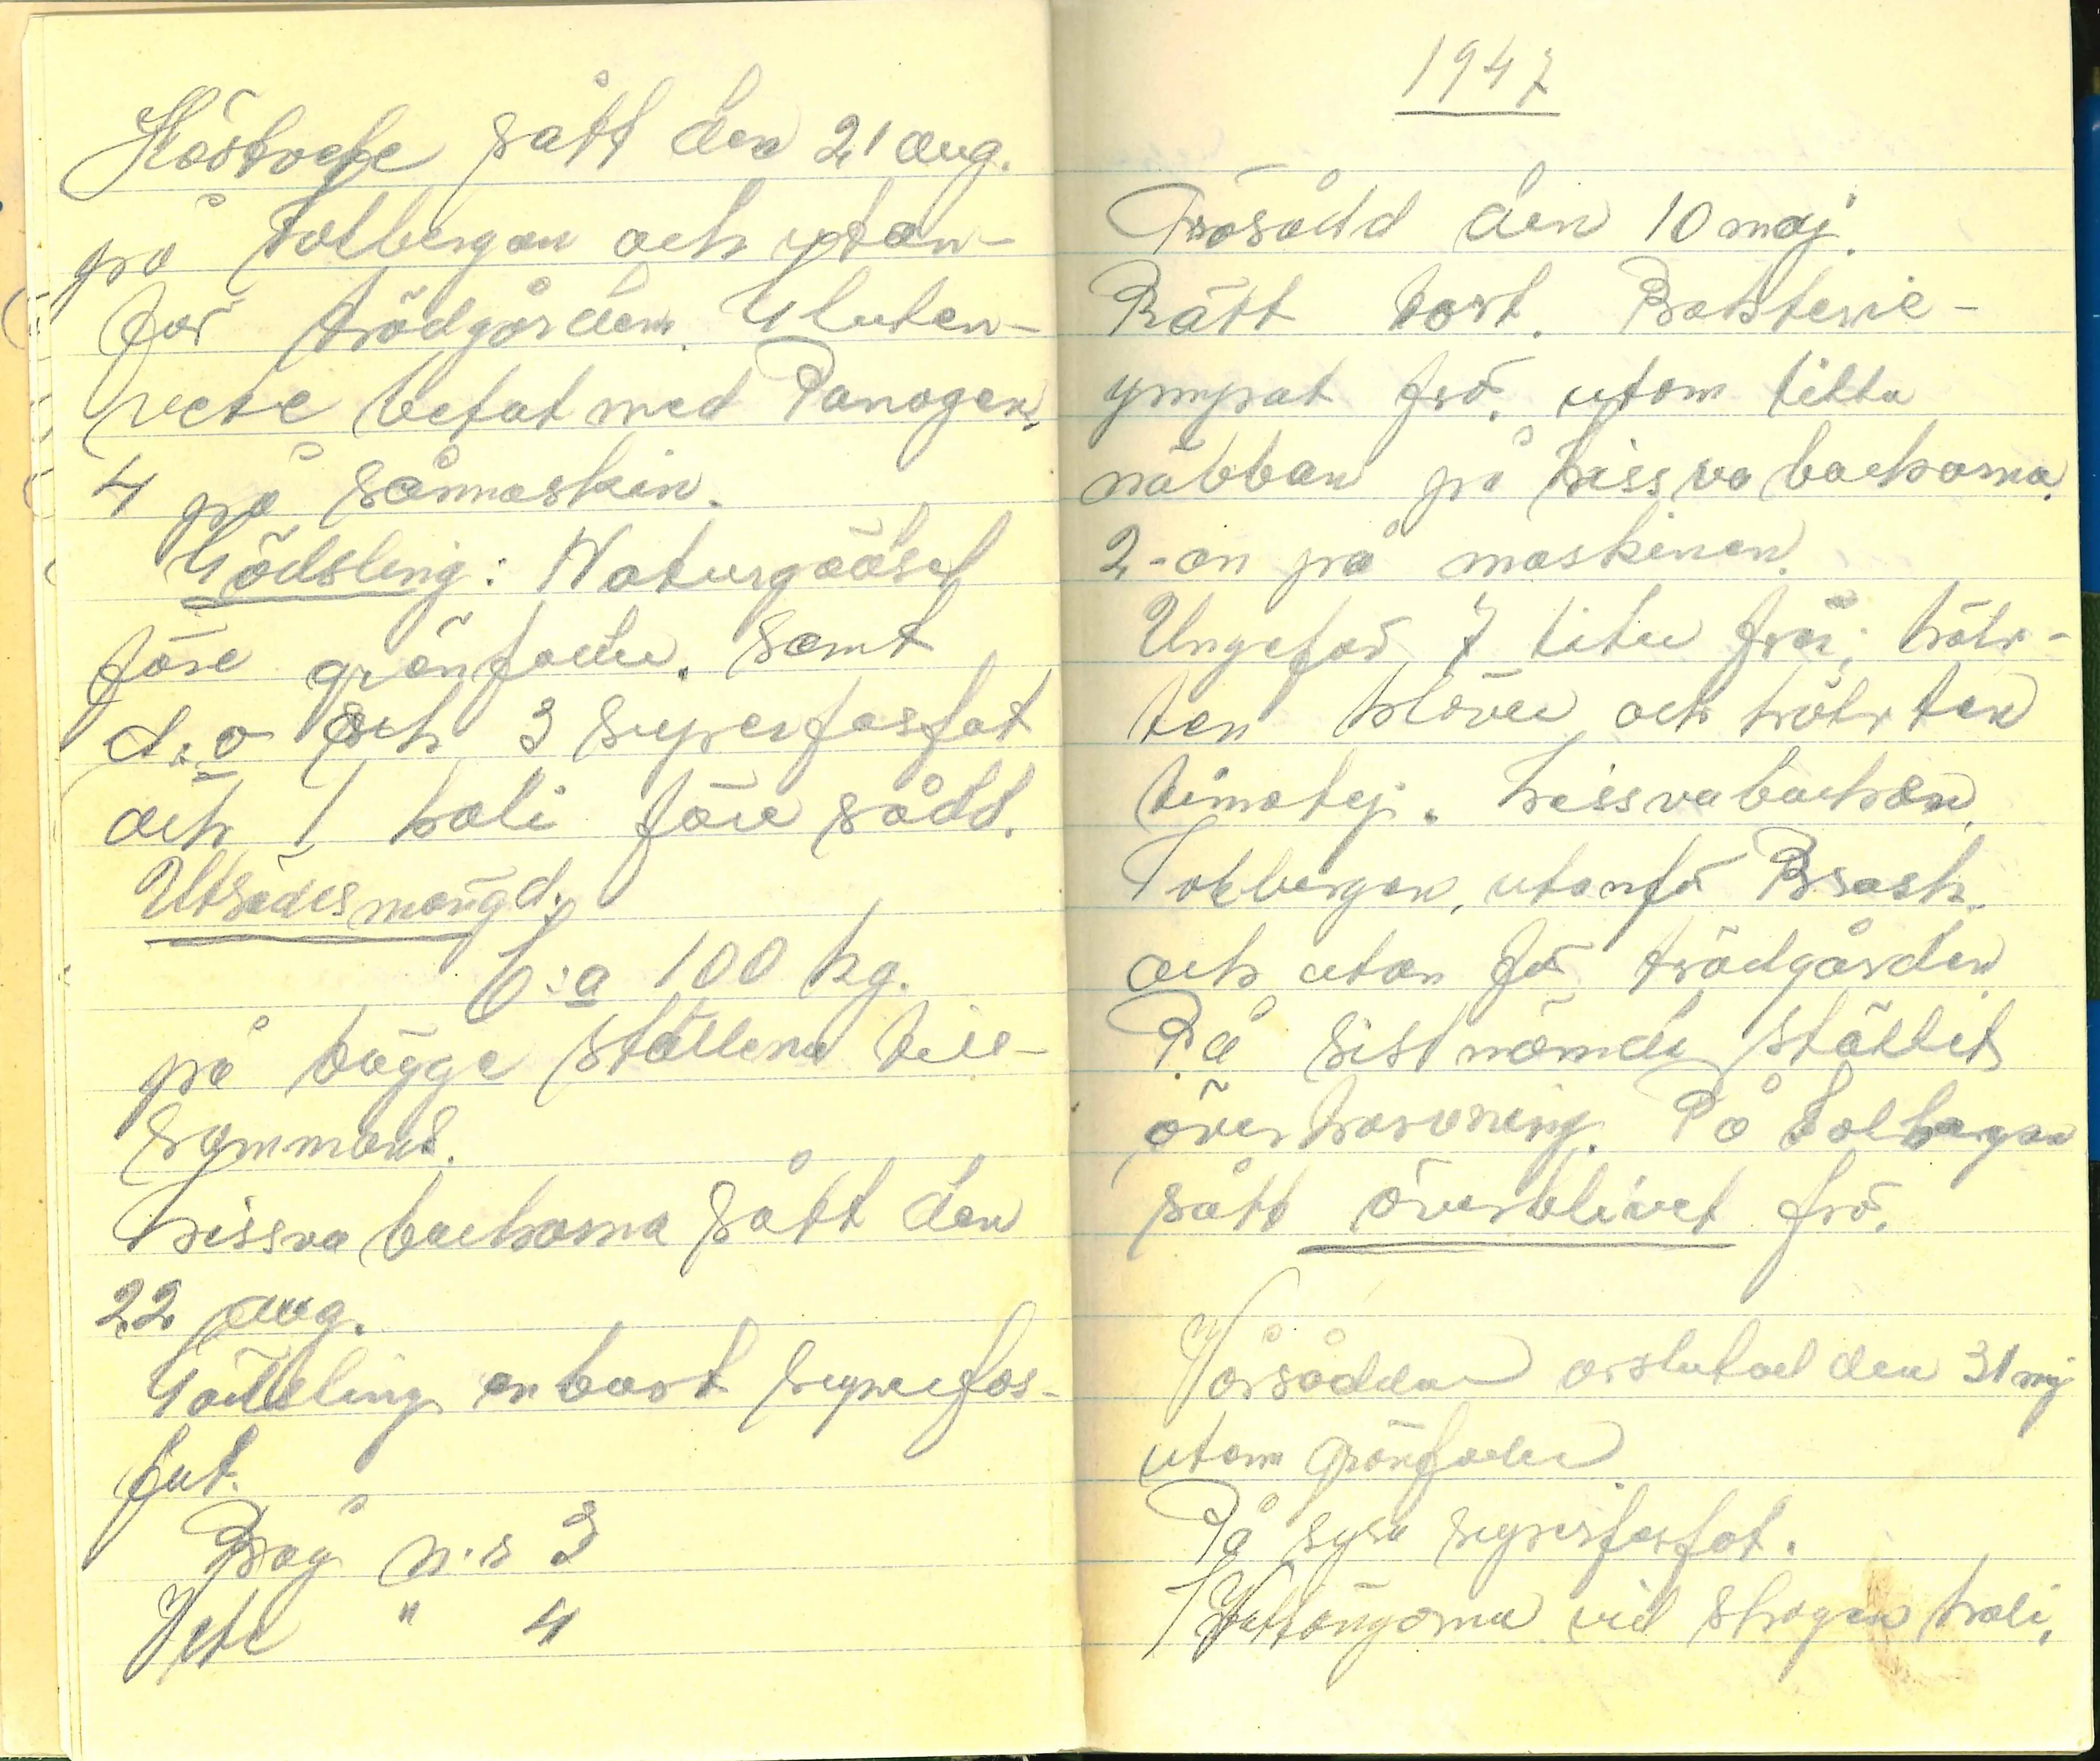 Höstvete sått den 21 aug.
på Tolbergan och utan-
för trädgården. Gluten-
vete betat med Panogen.
4 på såmaskin.
Gödsling: Naturgödsel
före grönfoder. Samt
d.o och 3 superfosfat
och 1 kali före sådd.
Utsädesmängd.
C:a 100 kg.
på bägge ställena till-
sammans.
Kissva backarna sått den
22 aug.
Gödsling enbart superfos-
fat.
Råg n:r 3
Vete " 4
1947
Frösådd den 10 maj.
Rätt tort. Bakterie-
ympat frö. utom lilla
näbban på Kissva backarna.
2-an på maskinen.
Ungefär 7 liter frö; hälf-
ten klöver och hälften
timotej. Kissvabackan,
Tolbergan, utanför Brask.
och utan för trädgården
På sist nämnda stället
överharvning. På Tolbergan
sått överblivet frö.
Vårsådden avslutad den 31 maj
utom grönfoder
På syra superfosfat.
vid skogen kali.